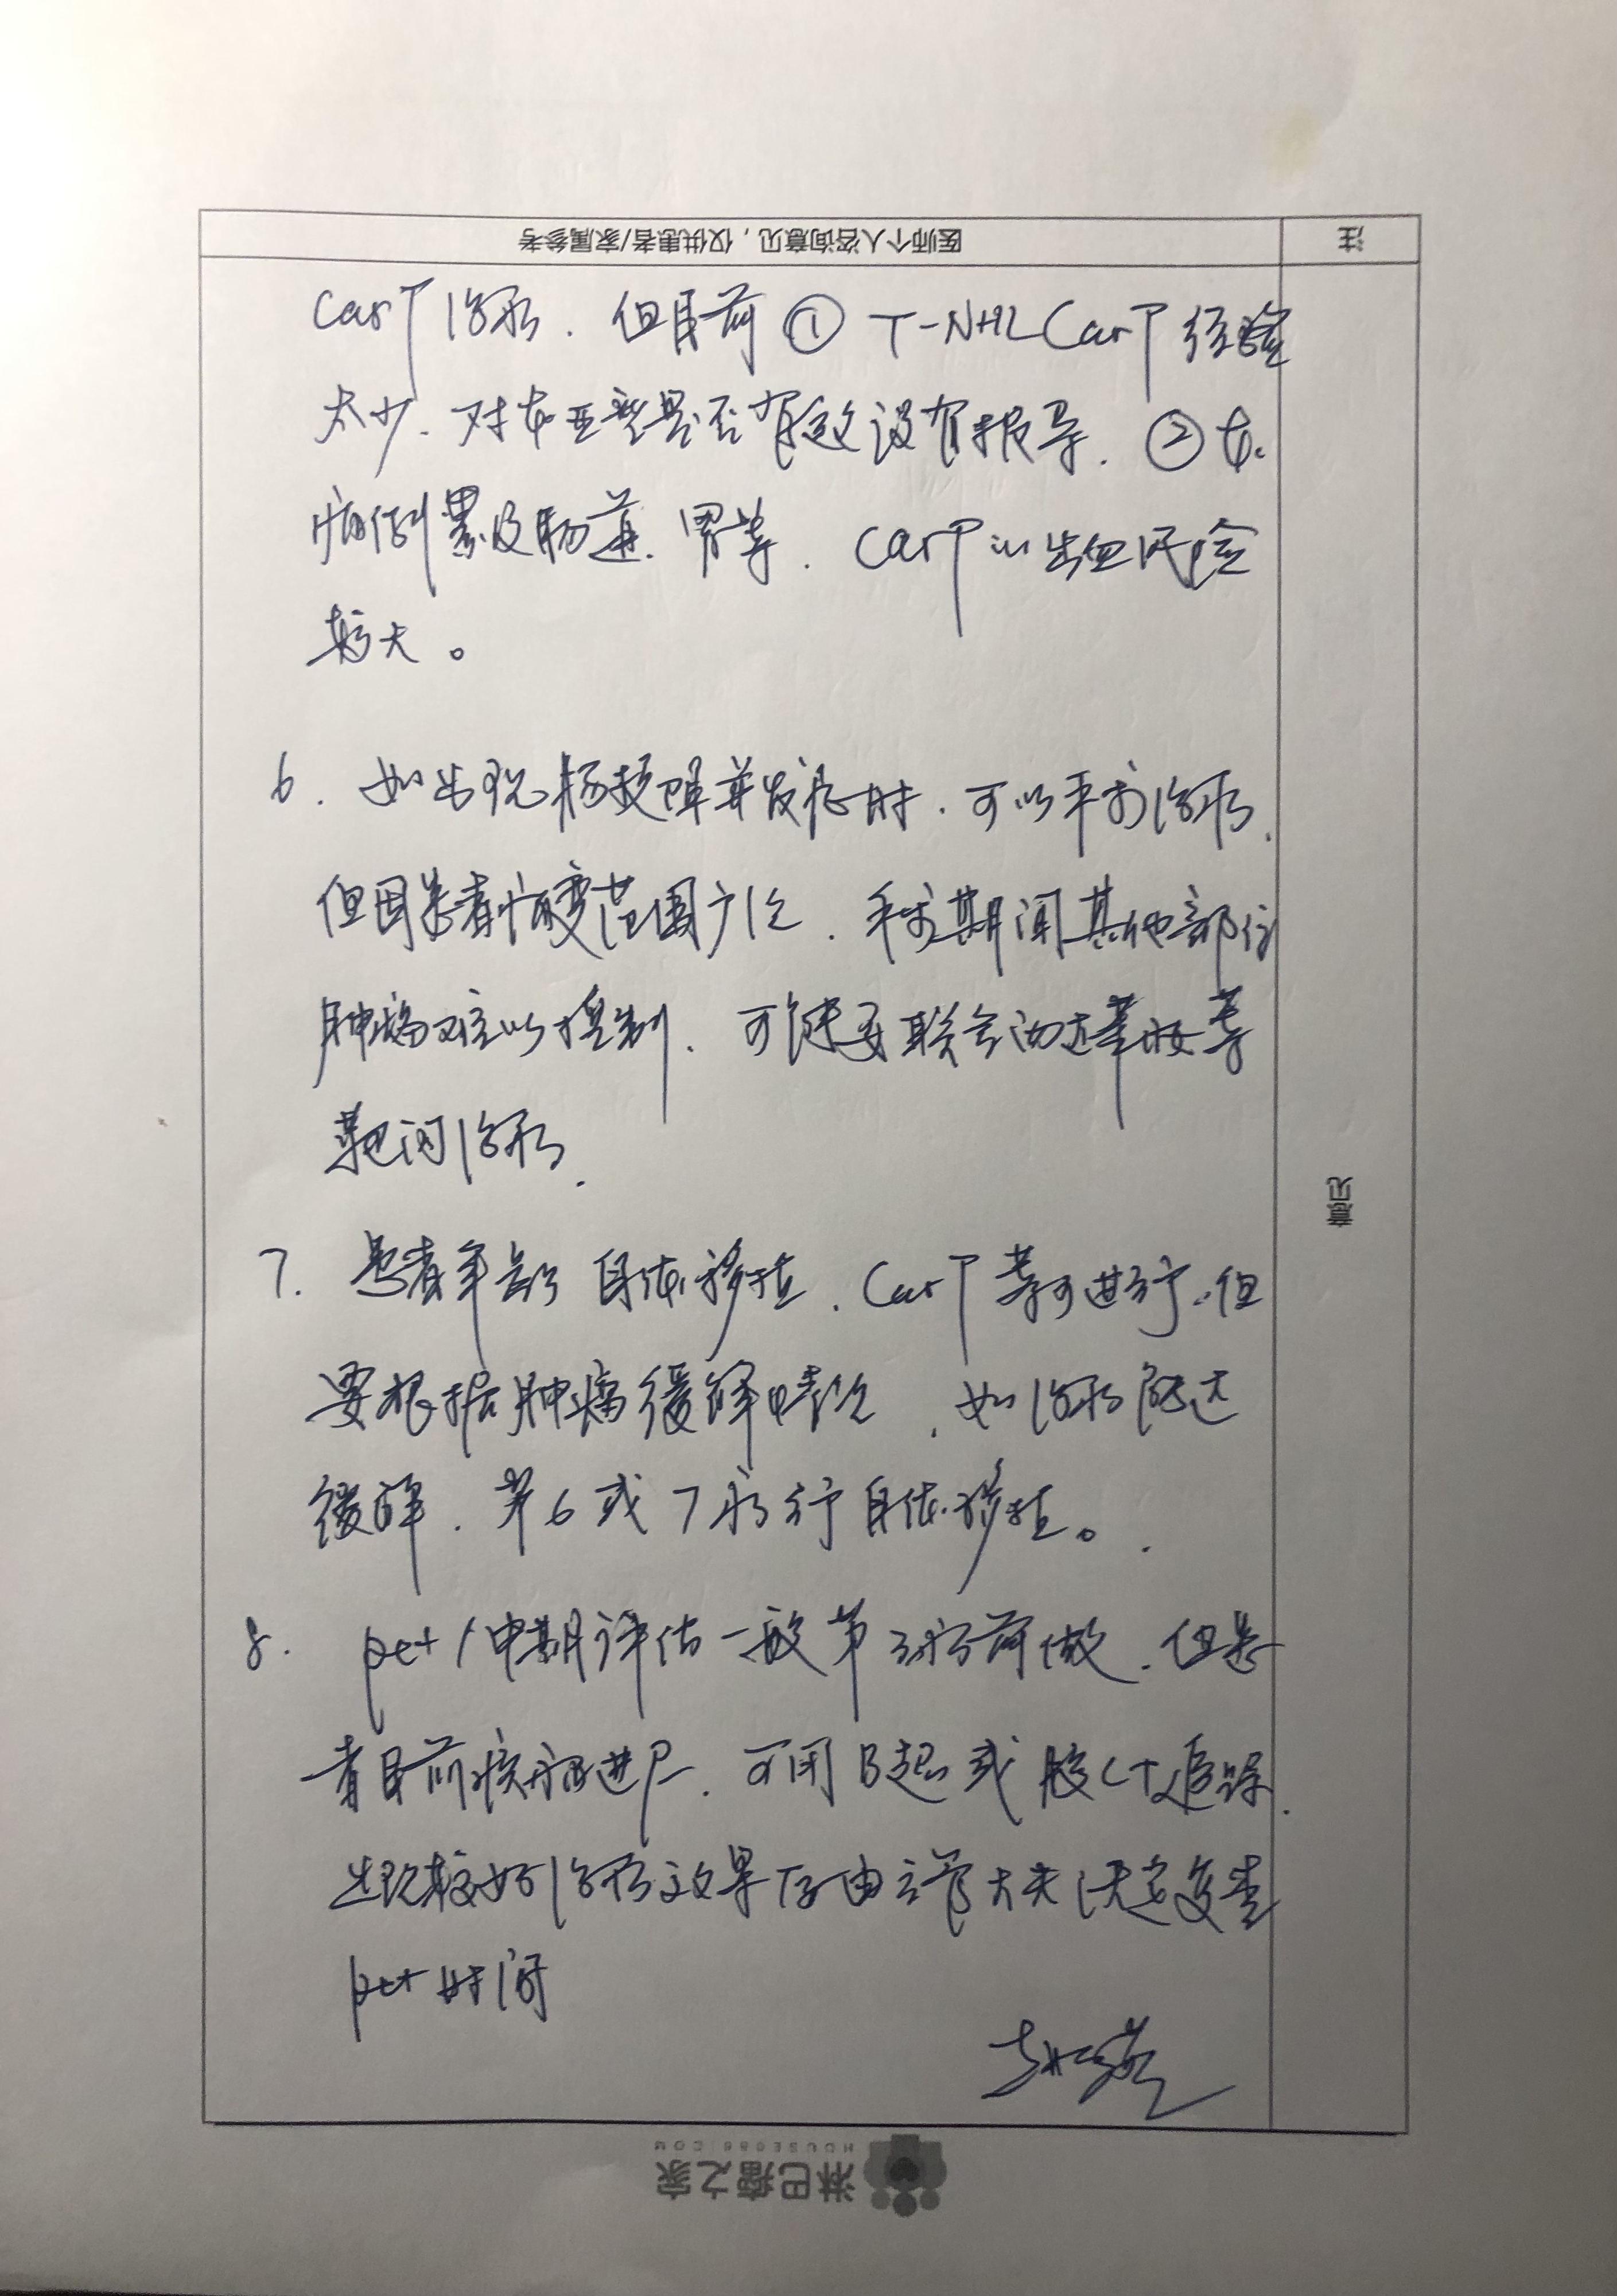 注 医师个人咨询意见，仅供患者/家属参考
CarT治疗．但目前① T-NHL CarT 经验
太少．对本亚型是否有效没有报导．②本
病例累及肠道．胃等．CarT 出血风险
较大。
6．如出现肠梗阻并发症时．可以手术治疗．
但因患者病变范围广泛．手术期间其他部位
肿瘤难以控制．可能要联合西达苯胺等
靶向治疗．
7．患者年龄 自体移植．CarT 等可进行．但
要根据肿瘤缓解情况．如治疗能达
缓解．第6或7疗行自体移植。
8．pet 中期评估一般第3疗前做．但患
者目前疾病进展．可用B超或 CT追踪．
出现较好治疗效果后由主管大夫决定复查
pet 时间
意见
淋巴瘤之家
HOUSE086.COM